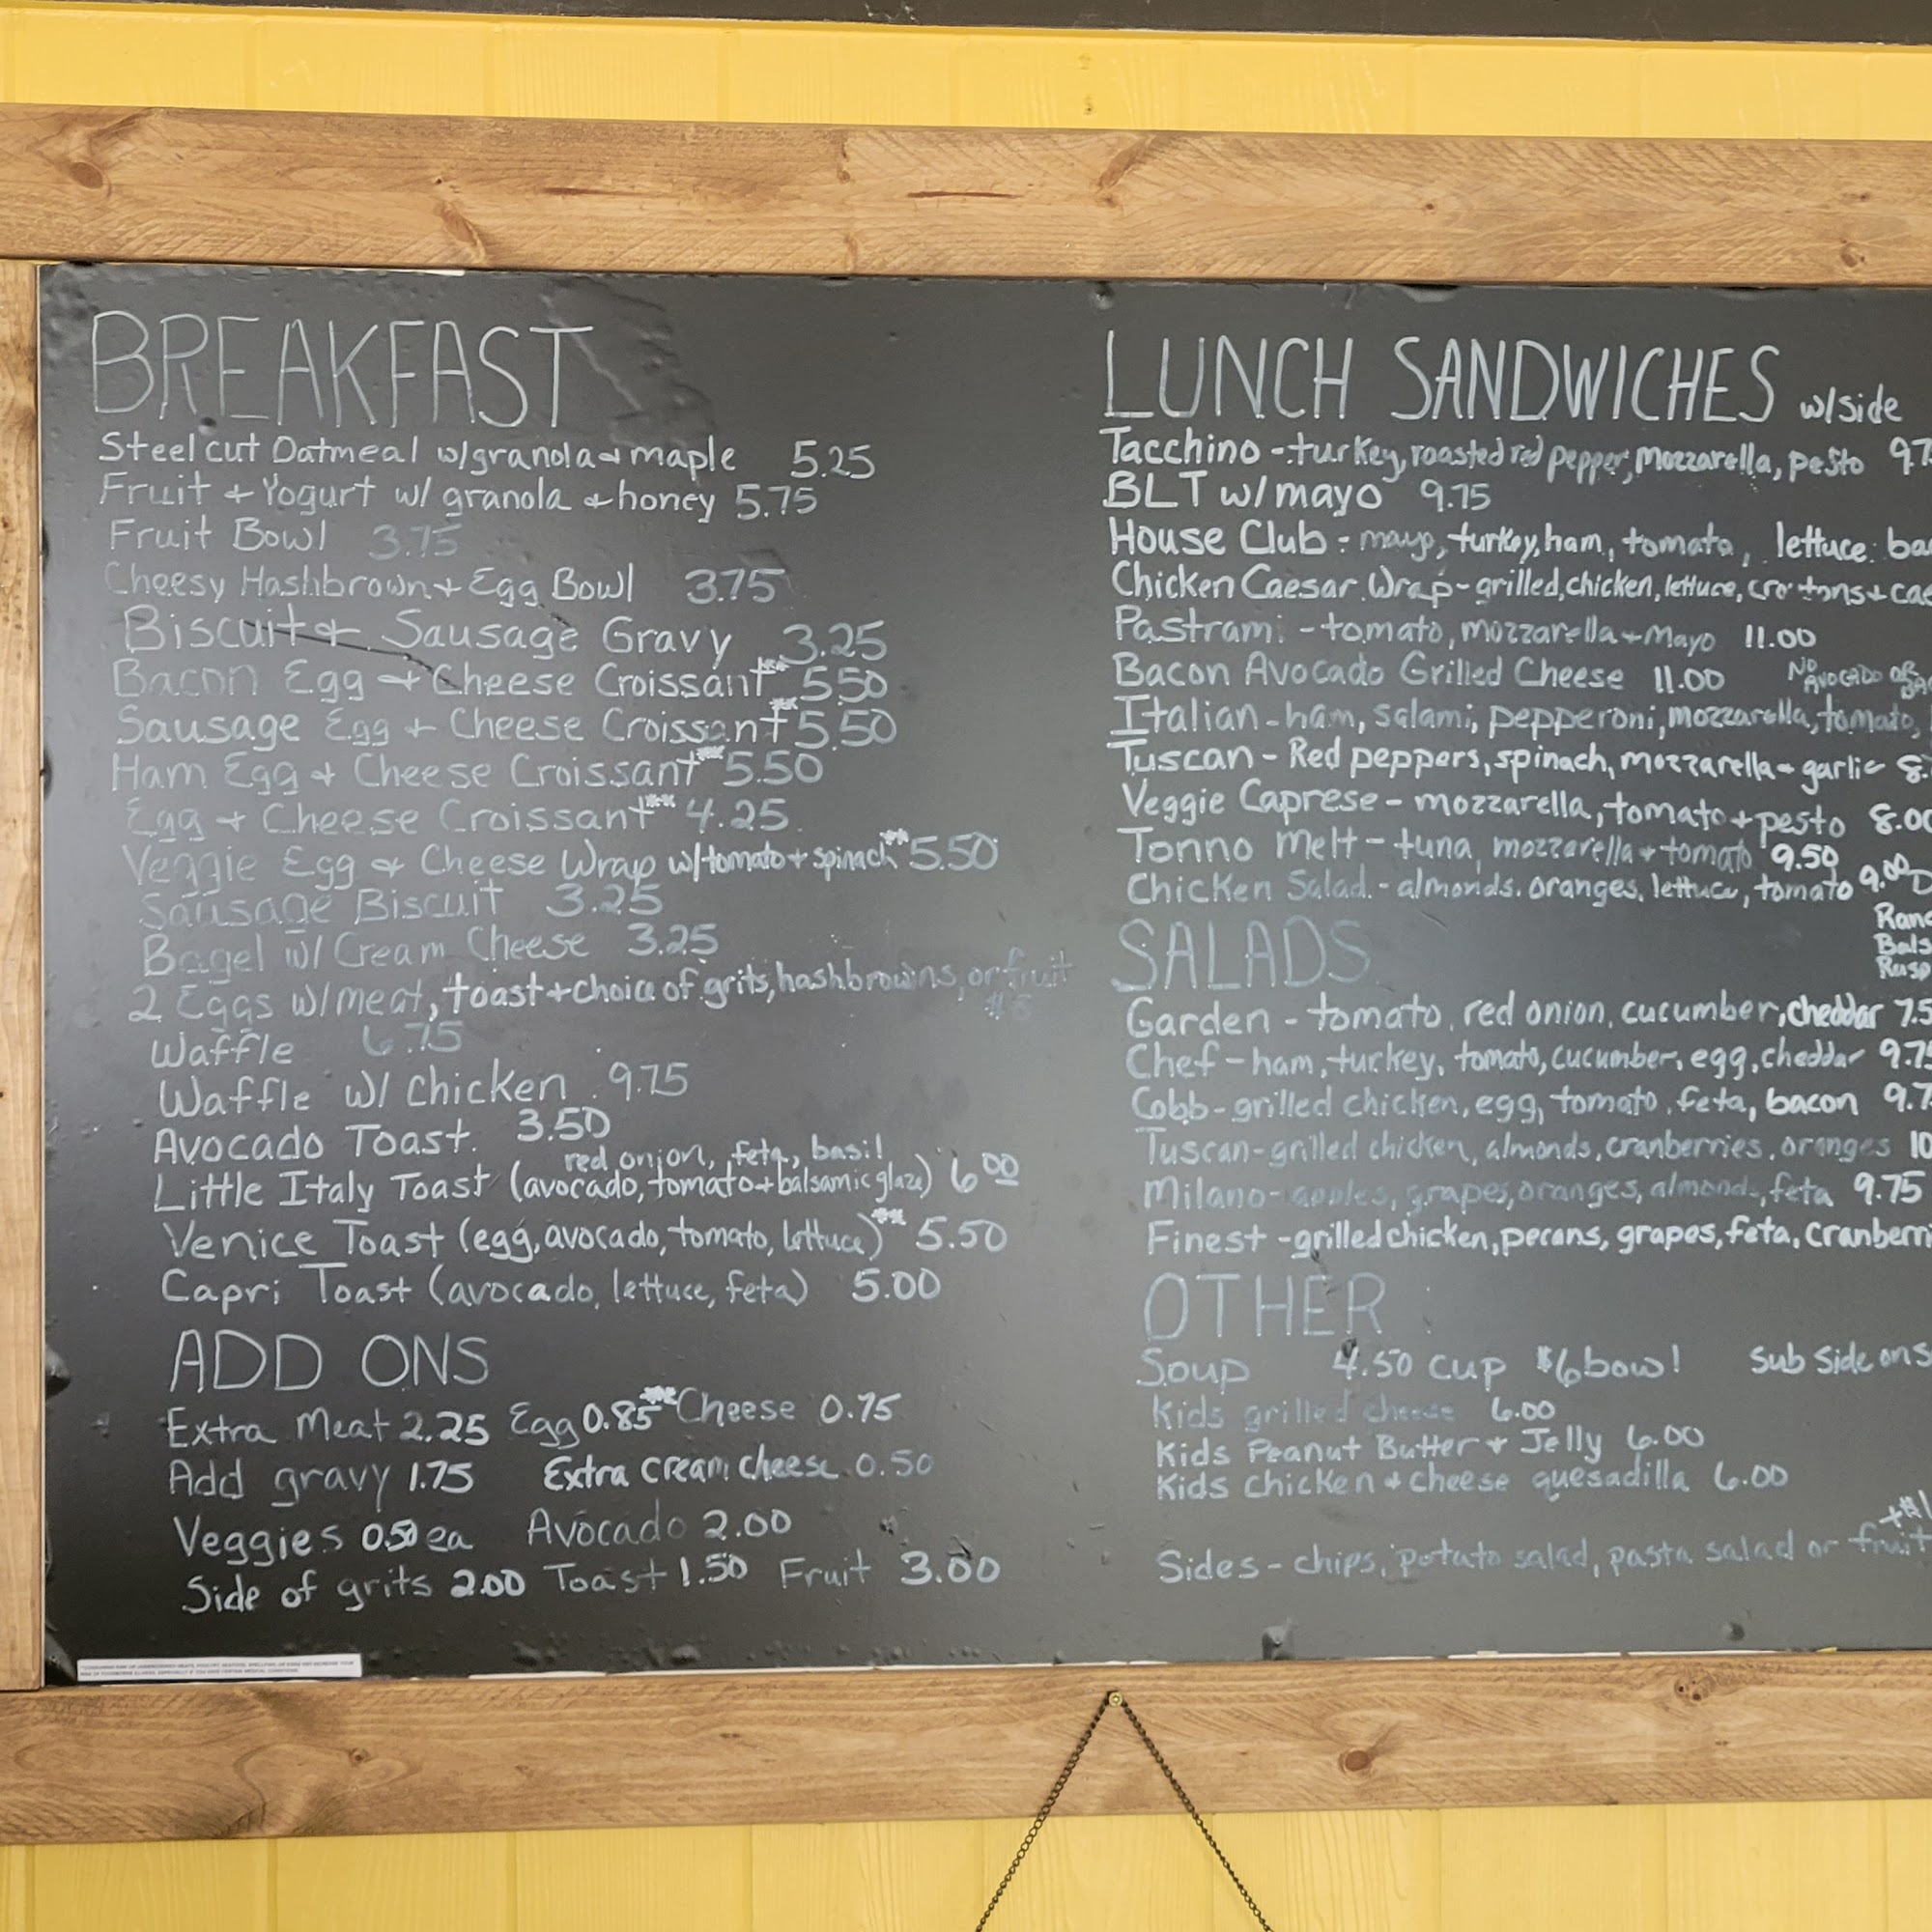 BREAKFAST
Steel cut Oatmeal w/granola + maple 5.25
Fruit + Yogurt w/ granola + honey 5.75
Fruit Bowl 3.75
Cheesy Hashbrown + Egg Bowl 3.75
Biscuit + Sausage Gravy 3.25
Bacon Egg + Cheese Croissant** 5.50
Sausage Egg + Cheese Croissant** 5.50
Ham Egg + Cheese Croissant** 5.50
Egg + Cheese Croissant** 4.25
Veggie Egg + Cheese Wrap w/tomato + spinach** 5.50
Sausage Biscuit 3.25
Bagel w/ Cream Cheese 3.25
2 Eggs w/meat, toast + choice of grits, hashbrowns, or fruit
Waffle 6.75
Waffle w/ Chicken 9.75
Avocado Toast 3.50
red onion, feta, basil
Little Italy Toast (avocado, tomato + balsamic glaze) 6.00
Venice Toast (egg, avocado, tomato, lettuce)** 5.50
Capri Toast (avocado, lettuce, feta) 5.00
ADD ONS
Extra Meat 2.25 Egg 0.85** Cheese 0.75
Add gravy 1.75 Extra cream cheese 0.50
Veggies 0.50 ea Avocado 2.00
Side of grits 2.00 Toast 1.50 Fruit 3.00
LUNCH SANDWICHES w/side
Tacchino - turkey, roasted red pepper, mozzarella, pesto
BLT w/mayo 9.75
House Club - mayo, turkey, ham, tomato, lettuce
Chicken Caesar Wrap - grilled, chicken, lettuce, croutons +
Pastrami - tomato, mozzarella + Mayo 11.00
Bacon Avocado Grilled Cheese 11.00 NO AVOCADO OR
Italian - ham, salami, pepperoni, mozzarella, tomato,
Tuscan - Red peppers, spinach, mozzarella + garlic
Veggie Caprese - mozzarella, tomato + pesto 8.00
Tonno Melt - tuna, mozzarella + tomato 9.50
Chicken Salad - almonds, oranges, lettuce, tomato 9.00
SALADS
Garden - tomato, red onion, cucumber, cheddar 7.5
Chef - ham, turkey, tomato, cucumber, egg, cheddar 9.75
Cobb - grilled chicken, egg, tomato, feta, bacon 9.7
Tuscan - grilled chicken, almonds, cranberries, oranges 10
Milano - apples, grapes, oranges, almonds, feta 9.75
Finest - grilled chicken, pecans, grapes, feta, cranberr
OTHER
Soup 4.50 cup $6 bowl Sub Side on
Kids grilled cheese 6.00
Kids Peanut Butter + Jelly 6.00
Kids chicken + cheese quesadilla 6.00
Sides - chips, potato salad, pasta salad or fruit